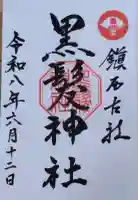 鎮石古社
黒髪神社
令和八年六月十二日